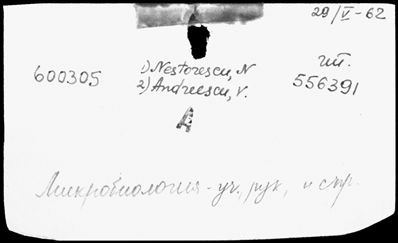 29/V-62
600305 1) Nestorescu, N шт.
2) Andreescu, V. 556391
A
Микробиология - уч., рук, и спр.